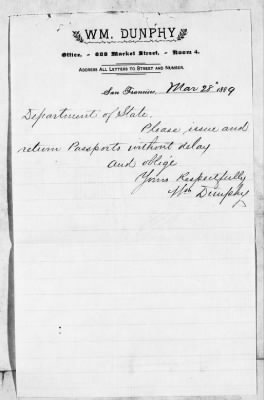 WM. DUNPHY
Office, - 628 Market Street. - Room 4.
ADDRESS ALL LETTERS TO STREET AND NUMBER.
San Francisco, Mar 28" 1889
Department of State.
Please issue and
return Passports without delay
and oblige
Yours Respectfully
Wm Dunphy